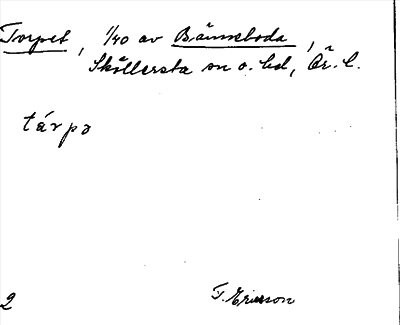 Torpet, 1/40 av Bännboda,
Sköllersta sn o. hd, Ör. l.
tárpə
2
T. Ericsson